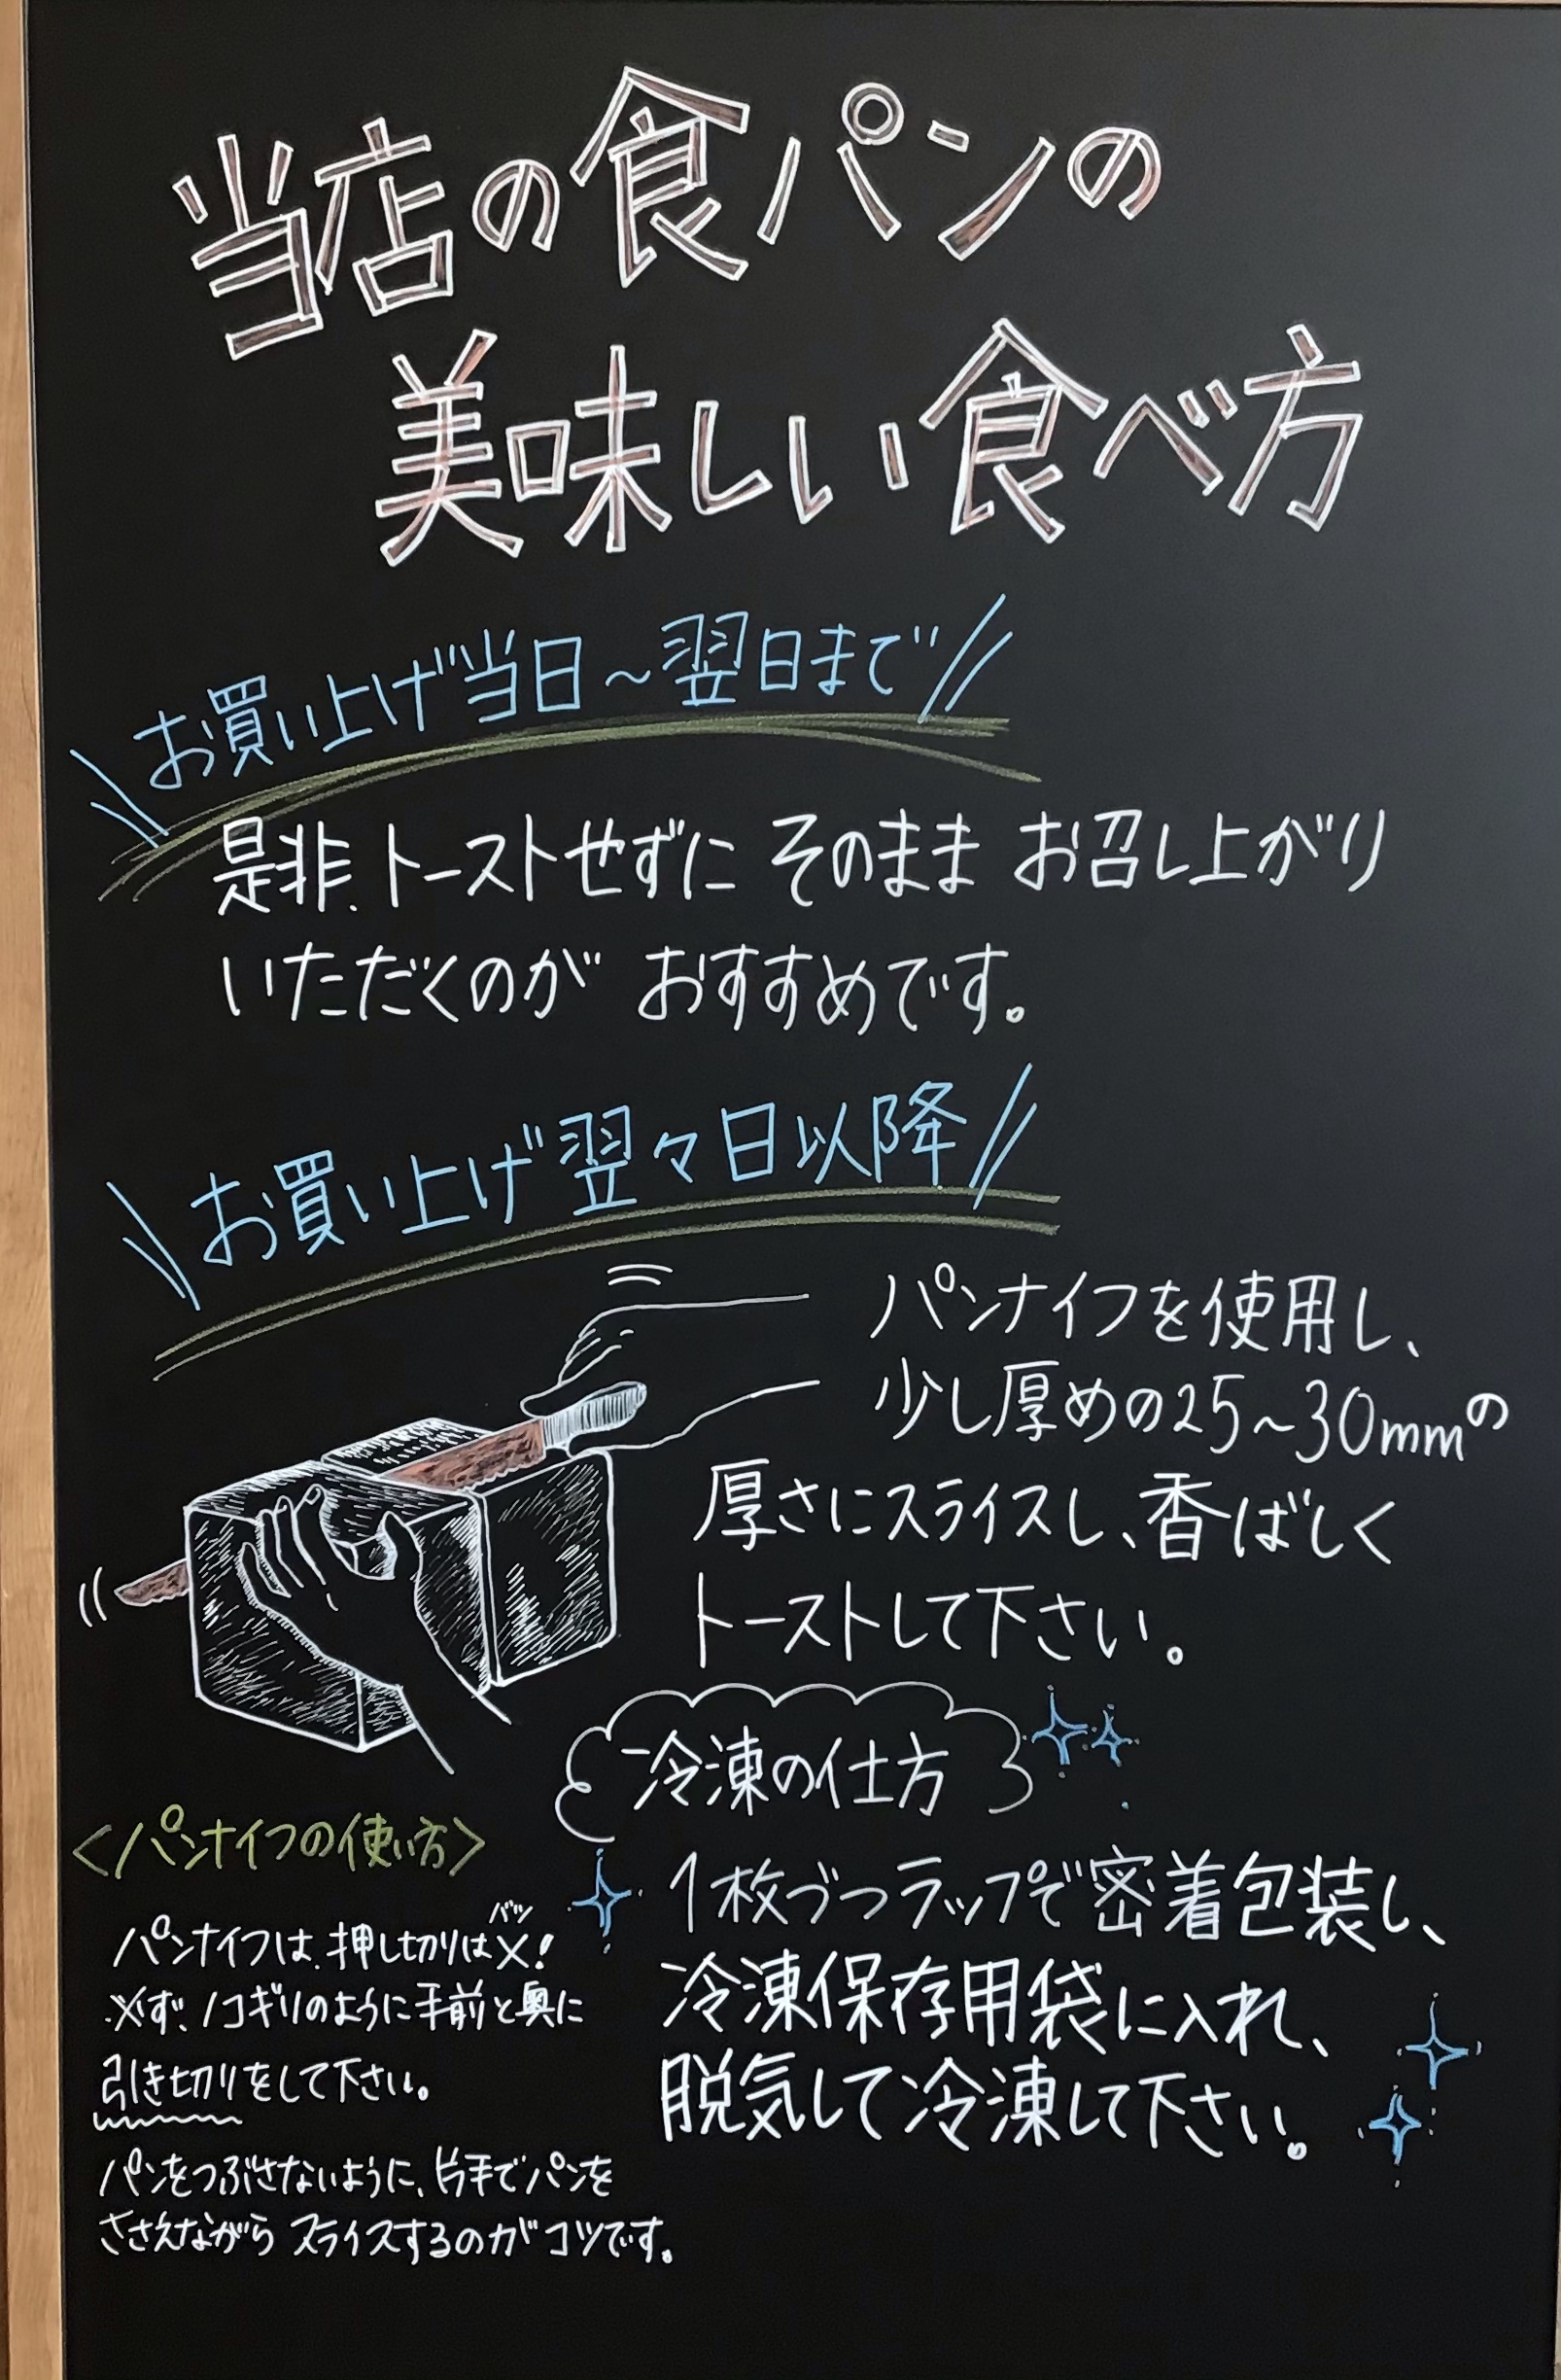 当店の食パンの
美味しい食べ方
お買い上げ当日～翌日まで
是非、トーストせずに そのまま お召し上がり
いただくのが おすすめです。
お買い上げ翌々日以降
パンナイフを使用し、
少し厚めの25～30mmの
厚さにスライスし、香ばしく
トーストして下さい。
冷凍の仕方
1枚づつラップで密着包装し、
冷凍保存用袋に入れ、
脱気して冷凍して下さい。
<パンナイフの使い方>
バツ
パンナイフは、押し切りは×!
必ず、ノコギリのように手前と奥に
引き切りをして下さい。
パンをつぶさないように、片手でパンを
ささえながら スライスするのがコツです。